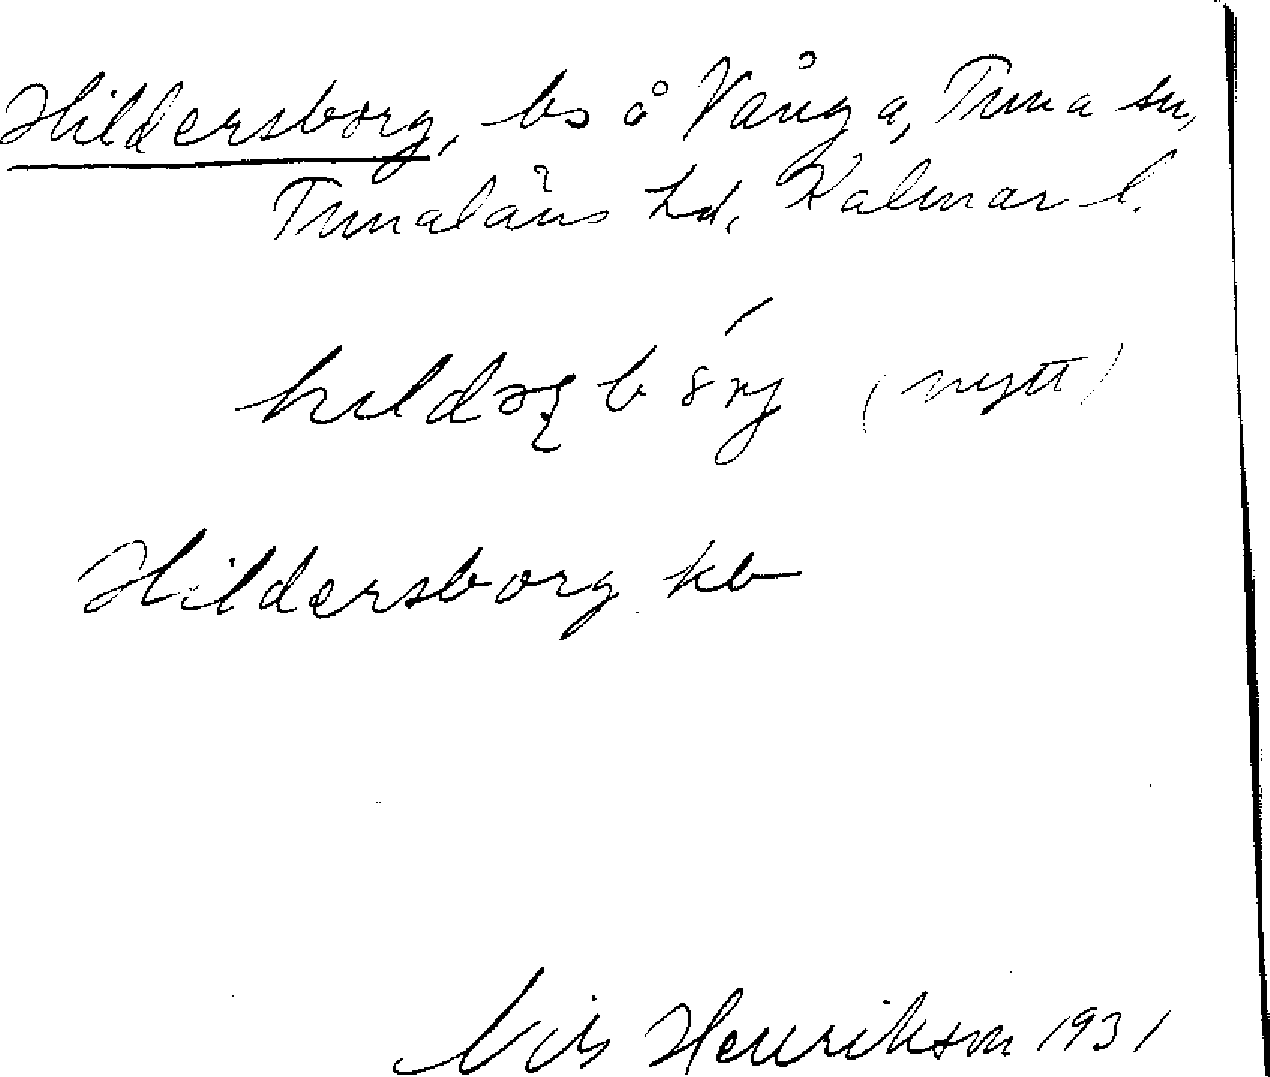 Hildersborg, bs å Vånga, Tuna sn,
Tunaläns hd. Kalmar l.
(nytt)
Hildersborg kb
Nils Henrikson 1931